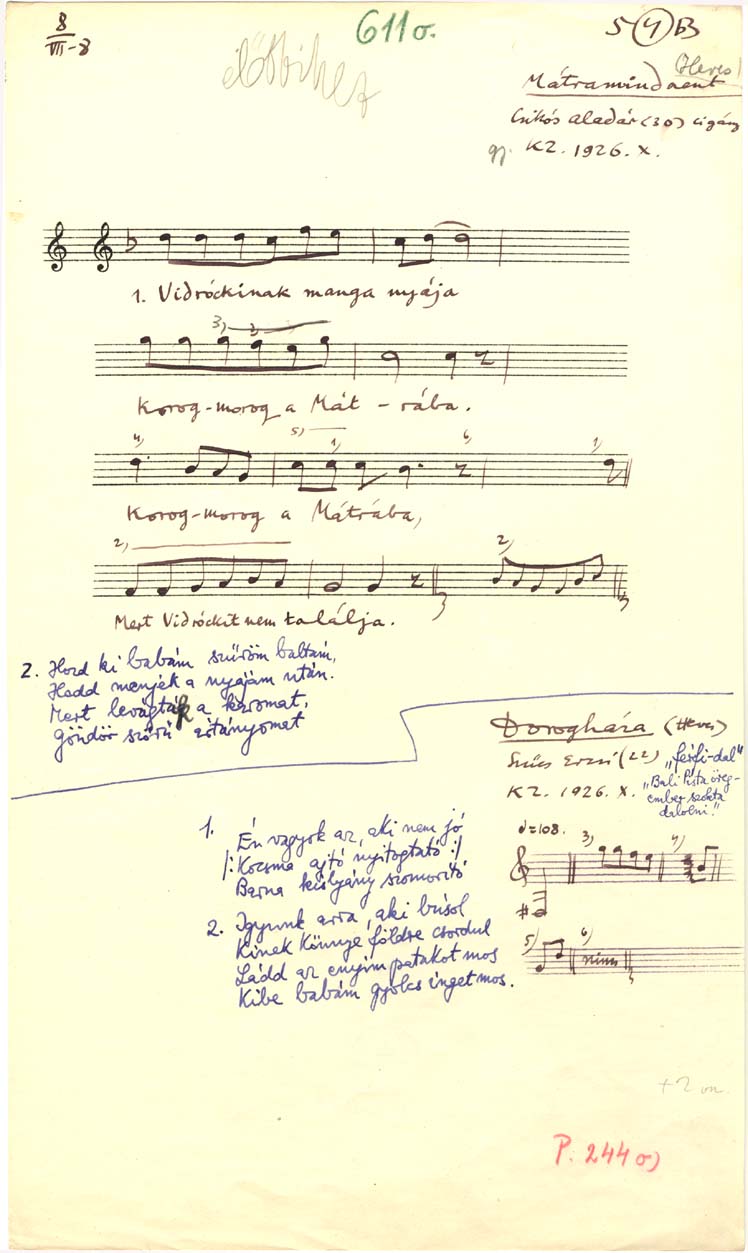 8
VII-8
611o.
előbbihez
5 (4) b3
(Heves)
Mátramindszent
Csikós Aladár (30) cigány
gy. KZ. 1926. X.
1. Vidróckinak manga nyája
3) 3
Korog-morog a Mát - rába.
4) 5) 1) 6) 1)
Korog-morog a Mátrába,
2) 2)
Mert Vidróckit nem találja.
2. Hozd ki babám szűröm baltám,
Hadd menjek a nyájam után.
Mert levágták a kosomat,
Göndör szőrű ártányomat
Dorogháza (Heves)
Szűcs Erzsi (22) „férfi-dal"
KZ. 1926. X. „Bali Pista öreg-
ember szokta
dalolni."
1. Én vagyok az, aki nem jó
/: Kocsma ajtó nyitogtató :/
Barna kislyány szomorító
2. Igyunk arra, aki búsol
Kinek könnye földre csordul
Ládd az enyim patakot mos
Kibe babám gyolcs inget mos.
=108.
3) 4)
5) 6)
nincs
+2 vsz.
P. 244o)